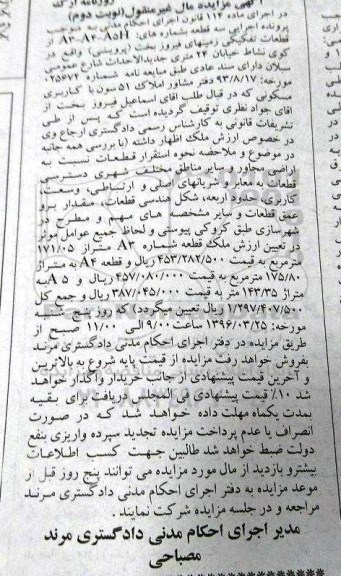 روزنامه ارک
آگهی مزایده مال غیرمنقول(نوبت دوم)
در اجرای ماده ۱۱۴ قانون اجرای احکام مدنی به موجب
پرونده اجرایی سه قطعه بشماره های: A۳-A۴-A۵
قطعات تفکیکی زمینهای فیروز بخت (پروینی) واقع در
کوی نشاط خیابان ۲۴ متری جدیدالاحداث شارع عمومی
سبلان دارای سند عادی طبق مبایعه نامه شماره ۱۲۵۶۷۲
مورخه: ۹۳/۸/۱۷ دفتر مشاور املاک ۵۱ سون با کاربری
مسکونی که در قبال طلب آقای اسماعیل فیروز بخت از
آقای جواد نظری توقیف گردیده است که پس از طی
تشریفات قانونی به کارشناس رسمی دادگستری ارجاع وی
در خصوص ارزش ملک اظهار داشته (با بررسی همه جانبه
در موضوع و ملاحضه نحوه استقرار قطعات نسبت به
اراضی مجاور و سایر مناطق مختلف شهری دسترسی
قطعات به معابر و شریانهای اصلی و ارتباطی، وسعت،
کاربری، حدود اربعه، شکل هندسی قطعات، مقدار برو
عمق قطعات و سایر مشخصه های مهم و مطرح در
شهرسازی طبق کروکی پیوستی و لحاظ جمیع عوامل موثر
در تعیین ارزش ملک قطعه شماره A۳ متراژ ۱۷۱/۰۵
مترمربع به قیمت ۴۵۳/۲۸۲/۵۰۰ ریال و قطعه A۴ به متراژ
۱۷۵/۸۰ مترمربع به قیمت ۴۵۷/۰۸۰/۰۰۰ ریال و A۵ به
متراژ ۱۴۳/۳۵ متر به قیمت ۳۸۷/۰۴۵/۰۰۰ ریال و جمع کل
۱/۲۹۷/۴۰۷/۵۰۰ ریال تعیین میگردد) که روز پنج شنبه
مورخه: ۱۳۹۶/۰۳/۲۵ ساعت ۹/۰۰ الی ۱۱/۰۰ صبح از
طریق مزایده در دفتر اجرای احکام مدنی دادگستری مرند
بفروش خواهد رفت مزایده از قیمت پایه شروع به بالاترین
و آخرین قیمت پیشنهادی از جانب خریدار واگذار خواهد
شد ۱۰٪ قیمت پیشنهادی فی المجلس دریافت برای بقیه
بمدت یکماه مهلت داده خواهد شد که در صورت
انصراف یا عدم پرداخت مزایده تجدید سپرده واریزی بنفع
دولت ضبط خواهد شد طالبین جهت کسب اطلاعات
بیشترو بازدید از مال مورد مزایده می توانند پنج روز قبل از
موعد مزایده به دفتر اجرای احکام مدنی دادگستری مرند
مراجعه و در جلسه مزایده شرکت نمایند.
مدیر اجرای احکام مدنی دادگستری مرند
مصباحی